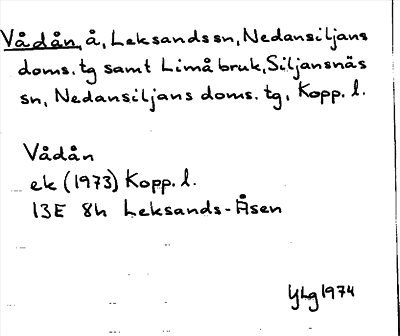 Vådån, å, Leksands sn, Nedansiljans
doms. tg samt Limå bruk, Siljansnäs
sn, Nedansiljans doms. tg, Kopp. l.
Vådån
ek (1973) Kopp. l.
13E 8h Leksands-Åsen
YLg 1974